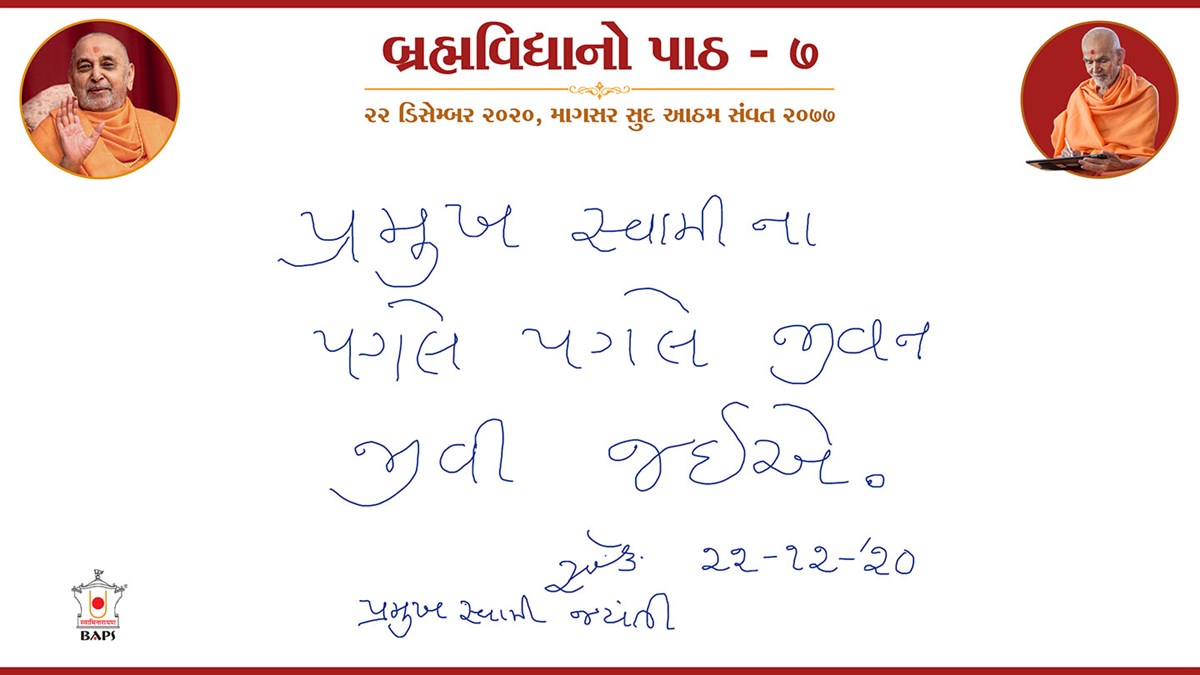 બ્રહ્મવિદ્યાનો પાઠ - ૭
૨૨ ડિસેમ્બર ૨૦૨૦, માગસર સુદ આઠમ સંવત ૨૦૭૭
પ્રમુખ સ્વામી ના
પગલે પગલે જીવન
જીવી જઈએ.
૨૨-૧૨-'૨૦
પ્રમુખ સ્વામી જયંતી
स्वामिनारायण
BAPS